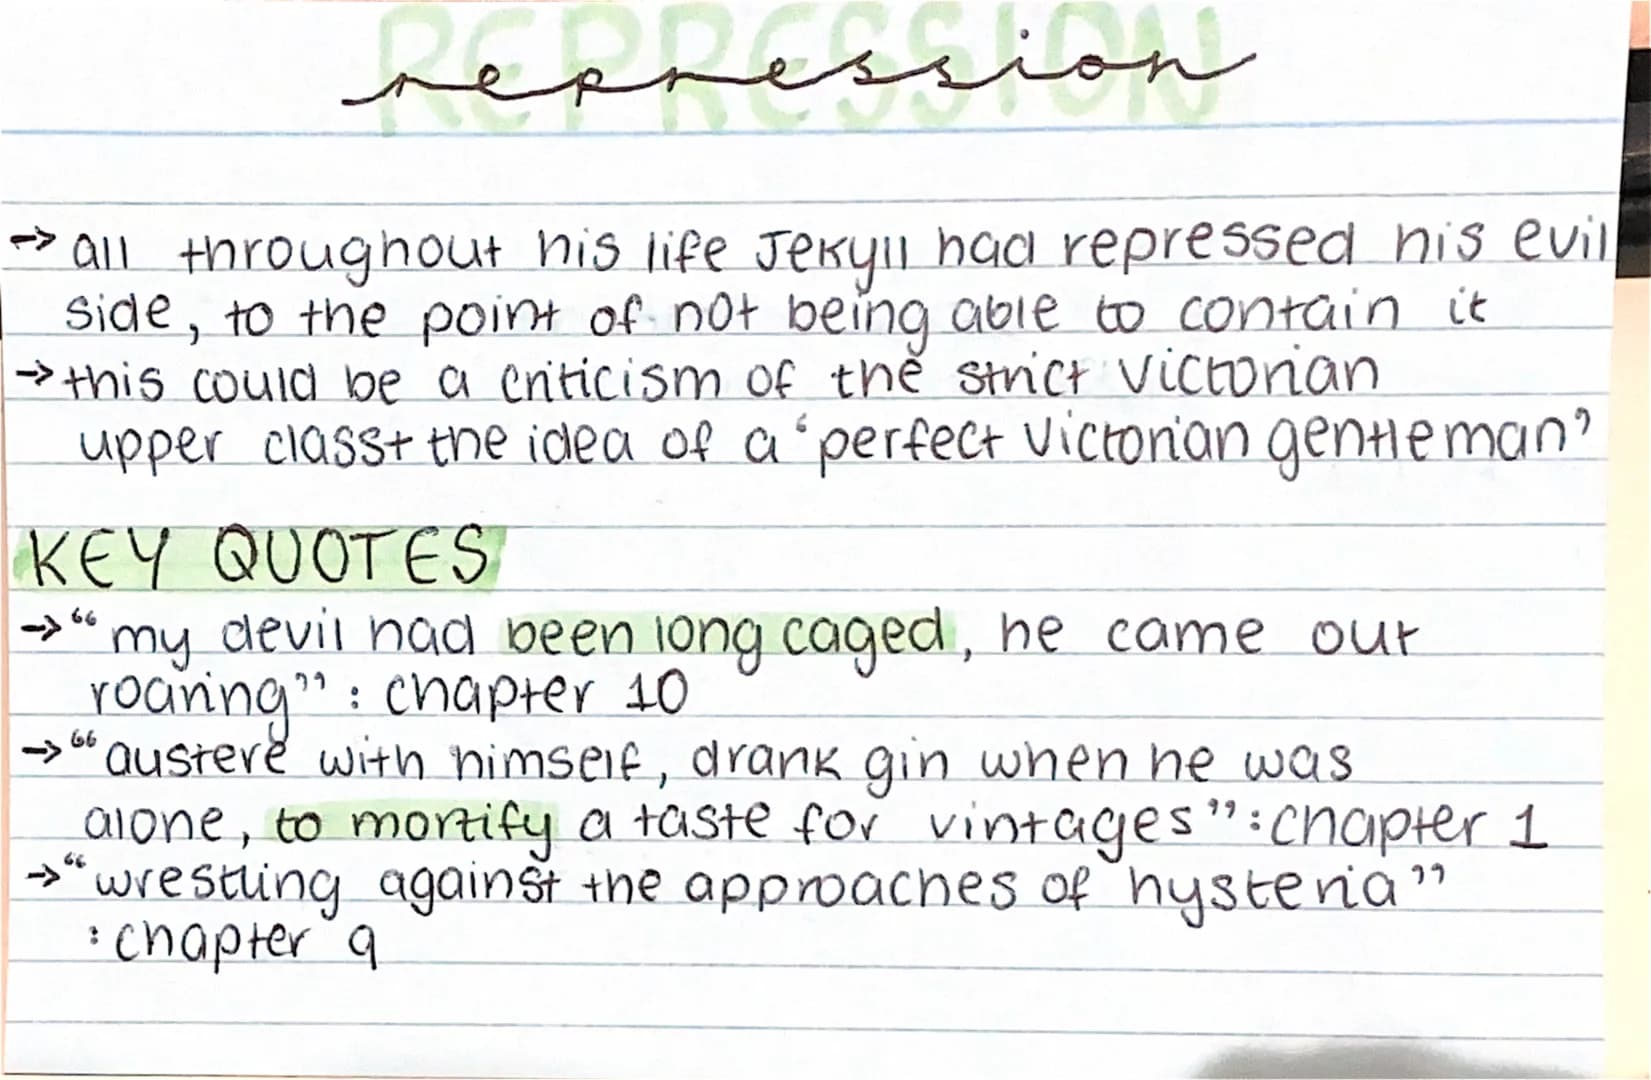 REPRESSION
repression
→ all throughout his life Jekyll had repressed his evil
side, to the point of not being able to contain it
→ this could be a criticism of the strict Victorian
upper class + the idea of a ‘perfect Victorian gentleman’
KEY QUOTES
→ “my devil had been long caged, he came out
roaring” : chapter 10
→ “austere with himself, drank gin when he was
alone, to mortify a taste for vintages” : chapter 1
→ “wrestling against the approaches of hysteria”
: chapter 9